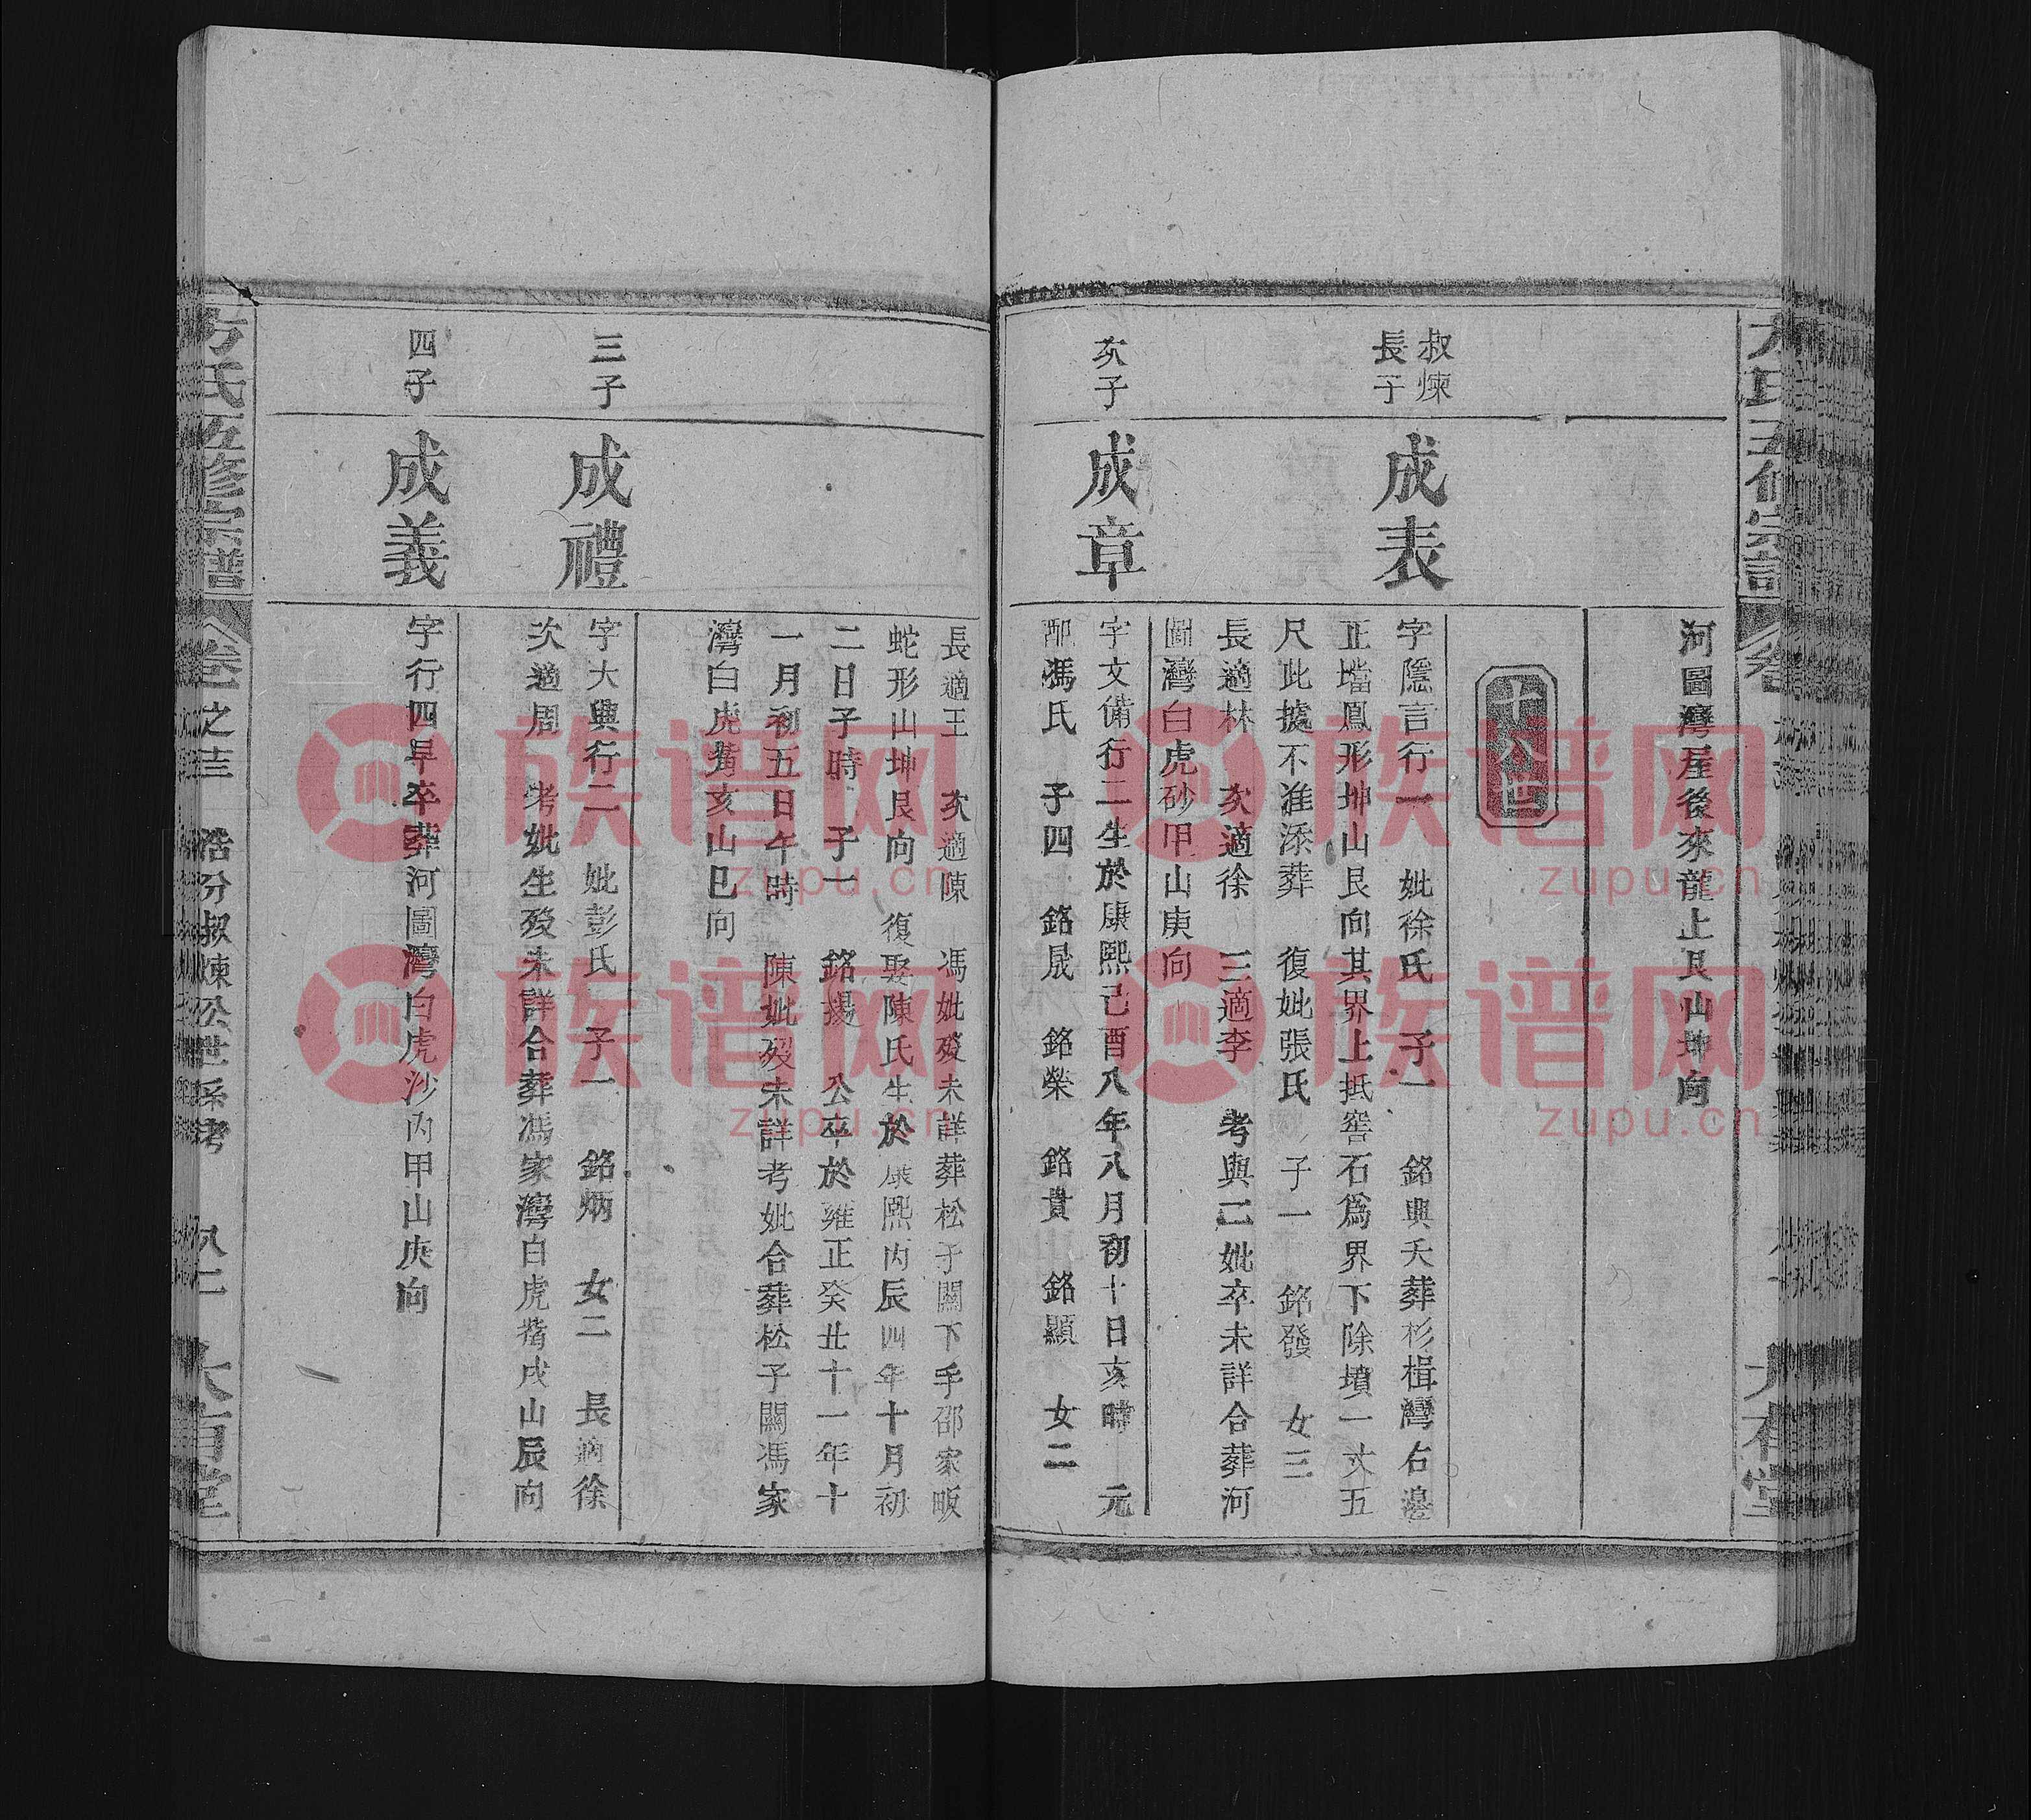 河圖灣屋後來龍止艮山坤向
十八世
叔煉
長子
成表
字隱言行一 妣徐氏 子一 銘興夭葬杉楫灣右邊
正壋鳳形坤山艮向其界上抵窖石為界下除墳一丈五
尺此據不准添葬 復妣張氏 子一 銘發 女三
長適林 次適徐 三適李 考與二妣卒未詳合葬河
圖灣白虎砂甲山庚向
次子
成章
字文備行二生於康熙己酉八年八月初十日亥時 元
配馮氏 子四 銘晟 銘榮 銘貴 銘顯 女二
長適王 次適陳 馮妣歿未詳葬松子關下手邵家畈
蛇形山坤艮向 復娶陳氏生於康熙丙辰四年十月初
二日子時 子一 銘揚 公卒於雍正癸丑十一年十
一月初五日午時 陳妣歿未詳考妣合葬松子關馮家
灣白虎嘴亥山巳向
三子
成禮
字大興行二 妣彭氏 子一 銘炳 女二 長適徐
次適周 考妣生歿未詳合葬馮家灣白虎嘴戌山辰向
四子
成義
字行四早卒葬河圖灣白虎沙內甲山庚向
方氏五修宗譜 卷一之三 浩公叔煉公世系考 八二 大有堂
族谱网
zupu.cn
族谱网
zupu.cn
族谱网
zupu.cn
族谱网
zupu.cn